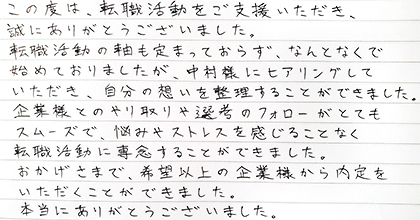 この度は、転職活動をご支援いただき、
誠にありがとうございました。
転職活動の軸も定まっておらず、なんとなくで
始めておりましたが、中村様にヒアリングして
いただき、自分の想いを整理することができました。
企業様とのやり取りや選考のフォローがとても
スムーズで、悩みやストレスを感じることなく
転職活動に専念することができました。
おかげさまで、希望以上の企業様から内定を
いただくことができました。
本当にありがとうございました。